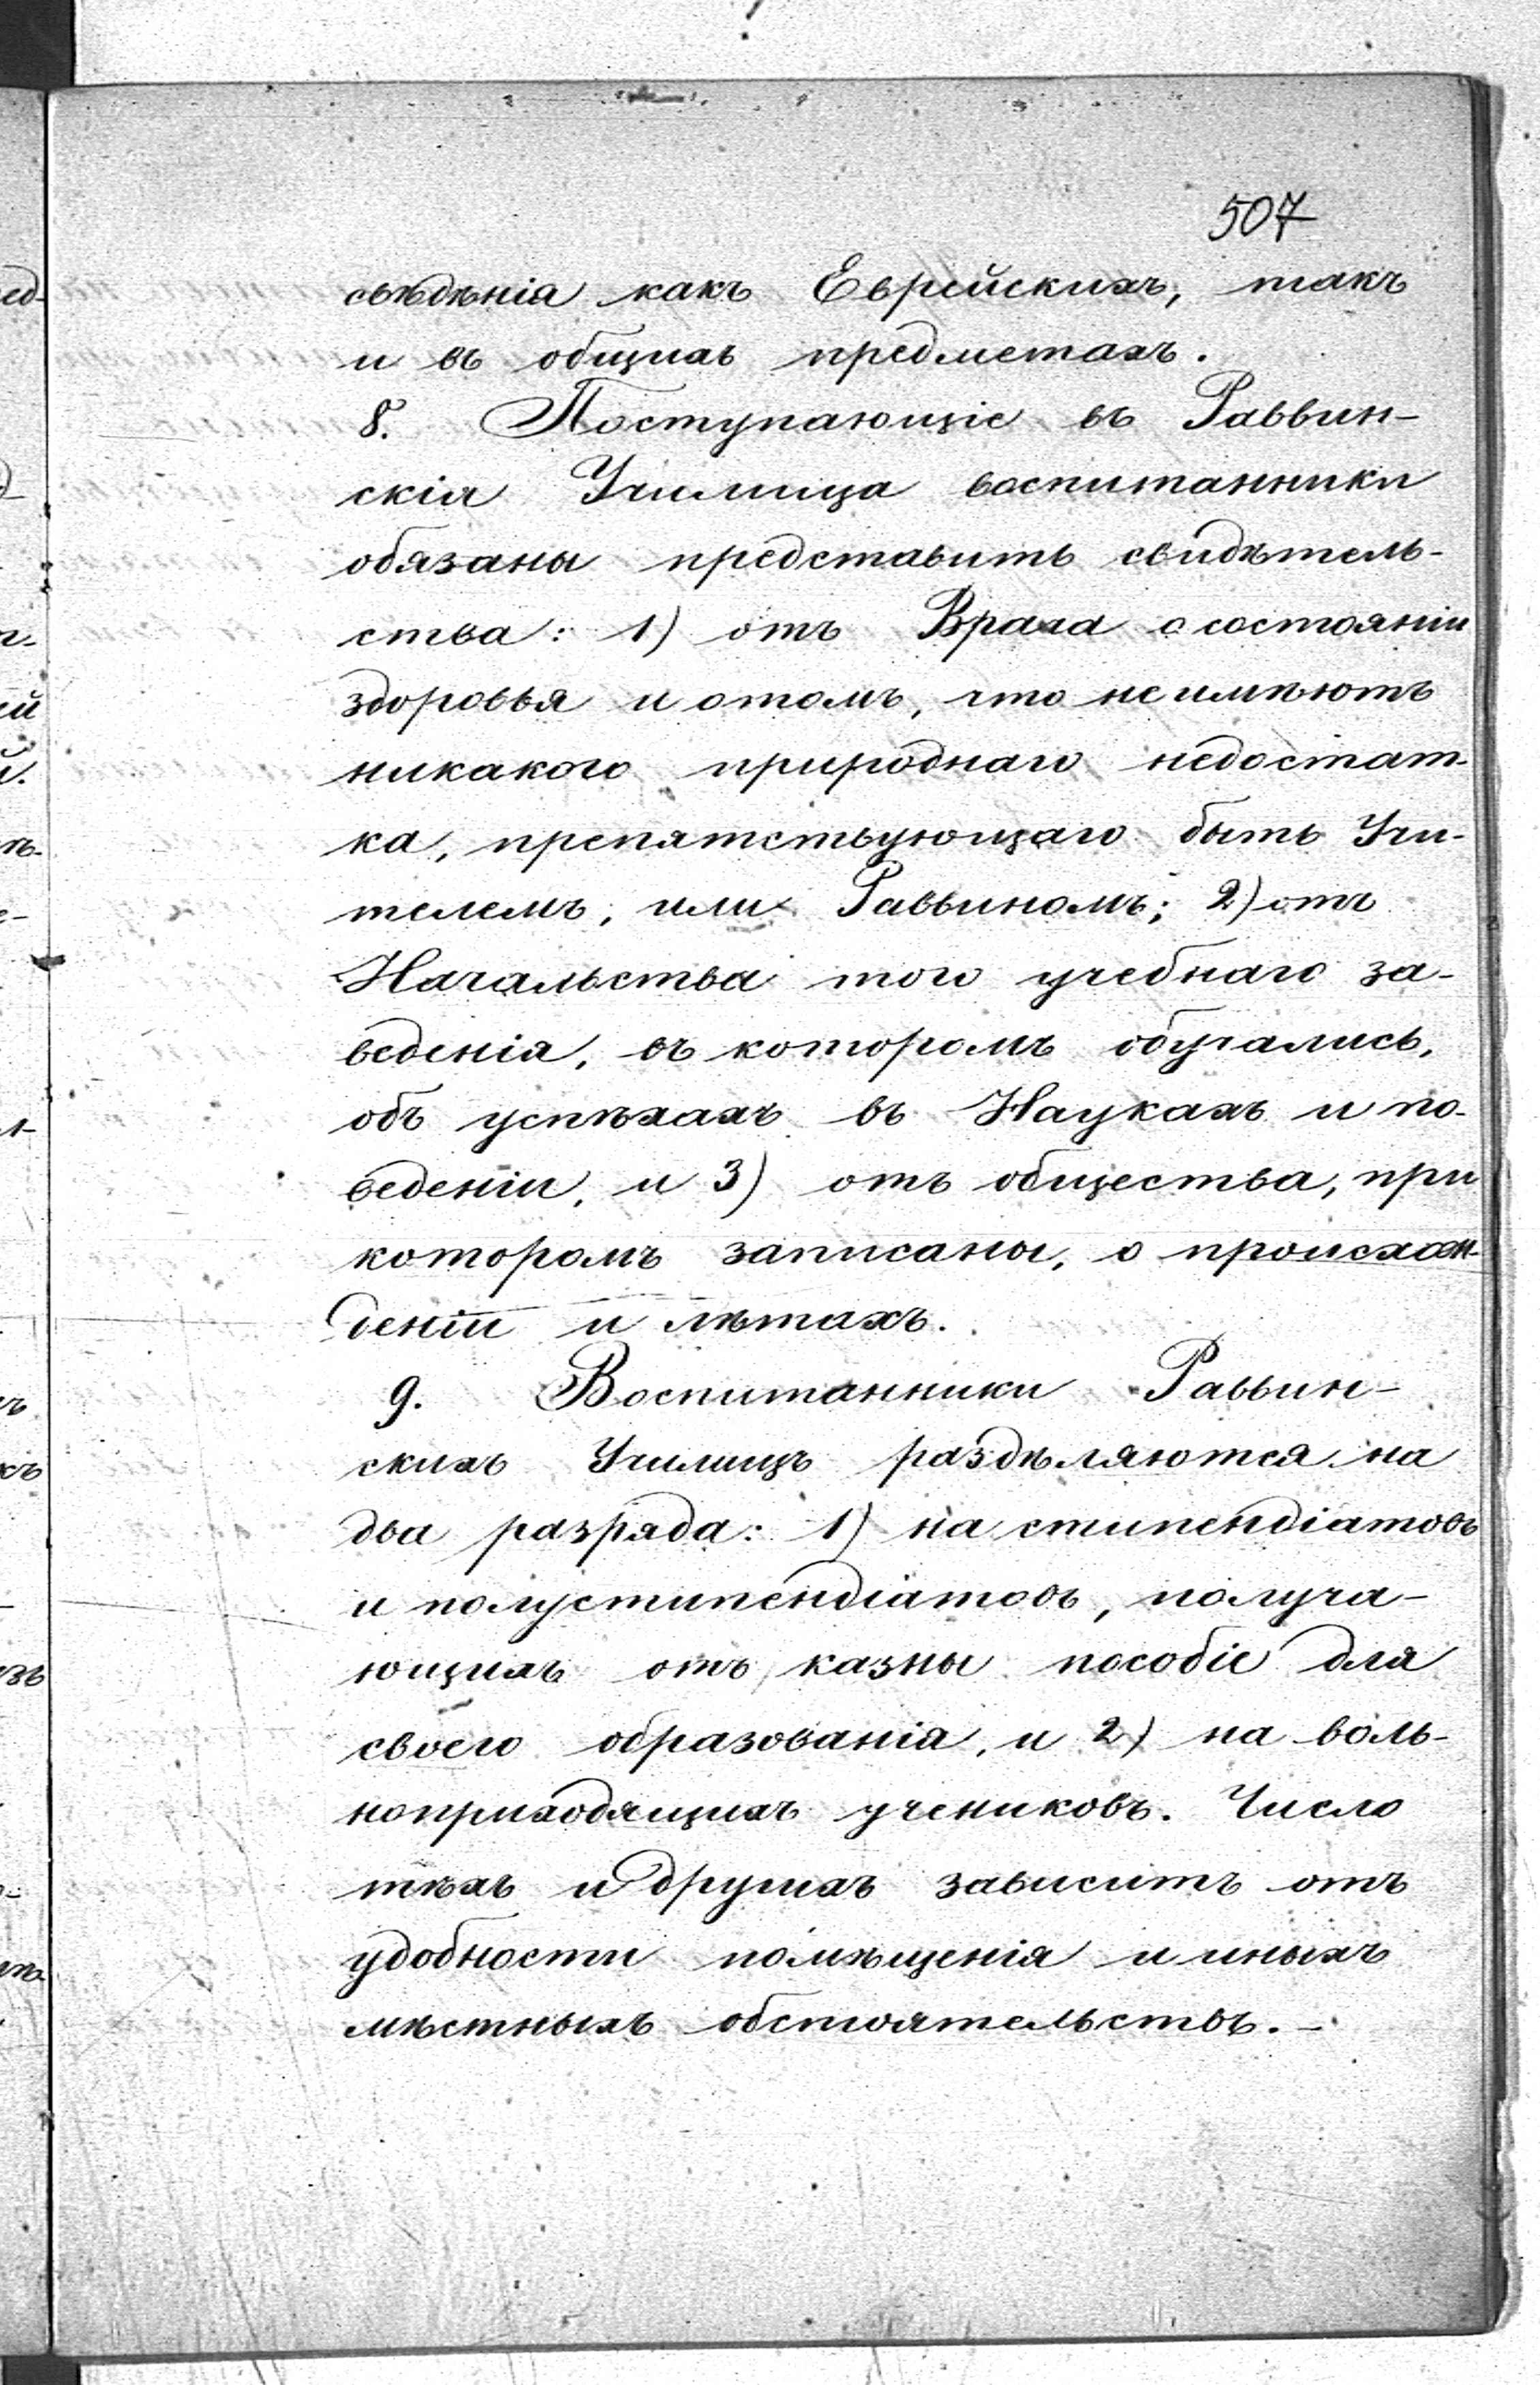 507
свѣдѣнія какъ Еврейскихъ, такъ
и въ общихъ предметахъ.
8. Поступающіе въ Раввин-
скія Училища воспитанники
обязаны представить свидѣтель-
ства: 1) отъ Врача о состояніи
здоровья и о томъ, что не имѣютъ
никакого природнаго недостат-
ка, препятствующаго быть Учи-
телемъ, или Раввиномъ; 2) отъ
Начальства того учебнаго за-
веденія, въ которомъ обучались,
объ успѣхахъ въ Наукахъ и по-
веденіи, и 3) отъ общества, при
которомъ записаны, о происхож-
деніи и лѣтахъ.
9. Воспитанники Раввин-
скихъ Училищъ раздѣляются на
два разряда: 1) на стипендіатовъ
и полустипендіатовъ, получа-
ющихъ отъ казны пособіе для
своего образованія, и 2) на воль-
ноприходящихъ учениковъ. Число
тѣхъ и другихъ зависитъ отъ
удобности помѣщенія и иныхъ
мѣстныхъ обстоятельствъ. -